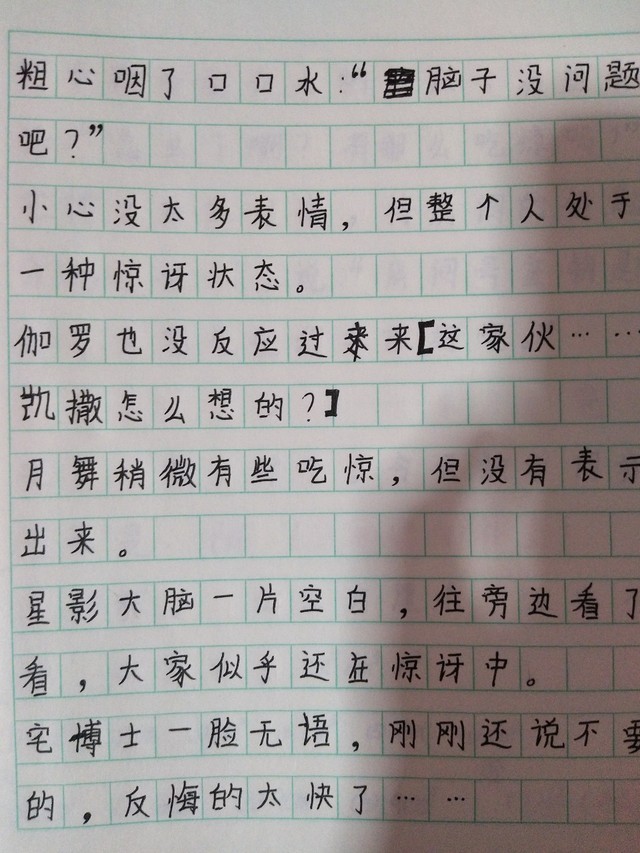 粗心咽了口口水：“脑子没问题
吧？”
小心没太多表情，但整个人处于
一种惊讶状态。
伽罗也没反应过来【这家伙……
凯撒怎么想的？】
月舞稍微有些吃惊，但没有表示
出来。
星影大脑一片空白，往旁边看了
看，大家似乎还在惊讶中。
宅博士一脸无语，刚刚还说不要
的，反悔的太快了……